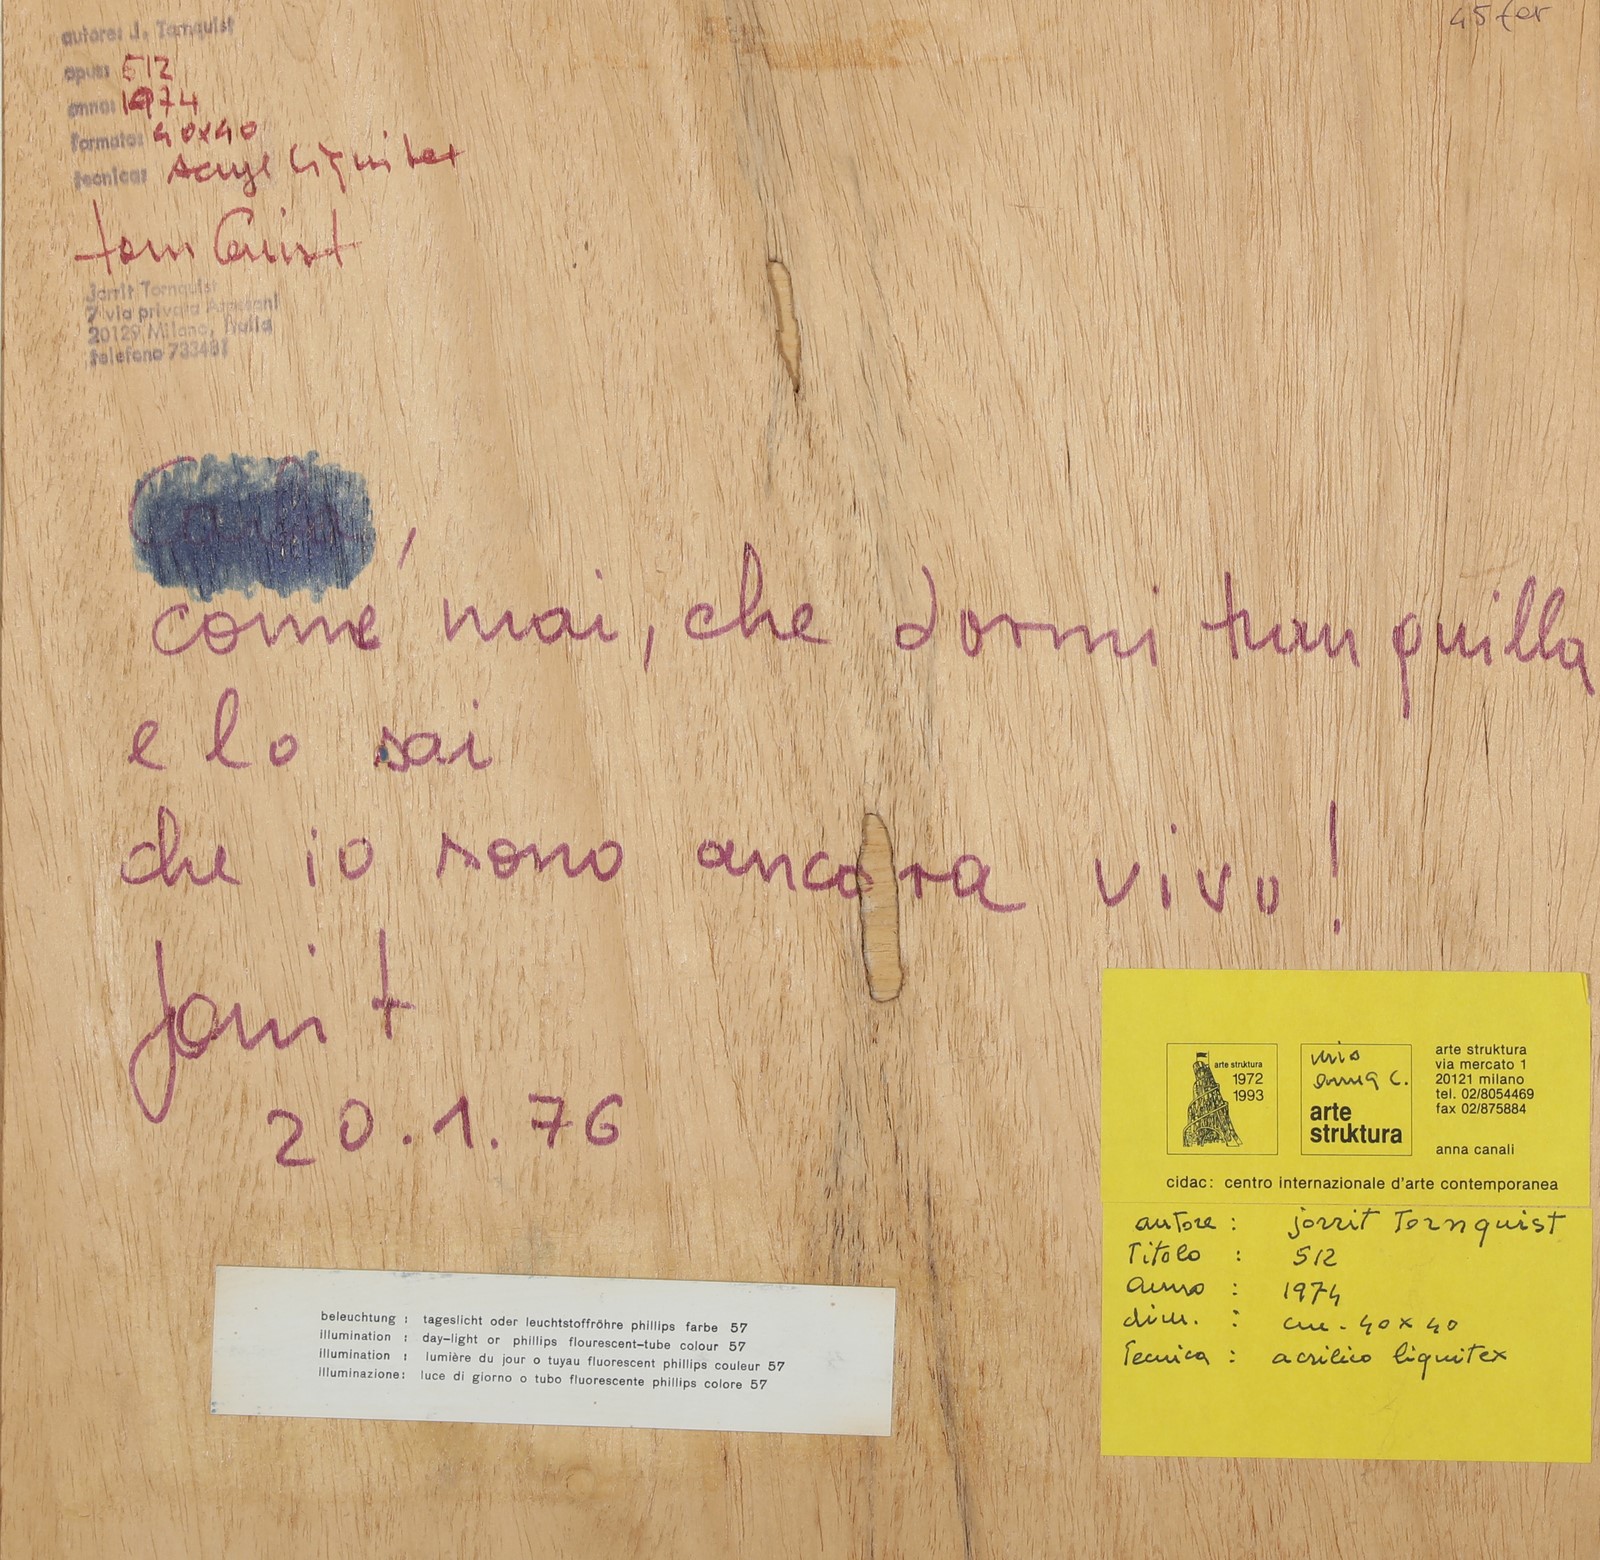 autore: J. Tornquist
opus: 512
anno: 1974
formato: 40x40
tecnica: Acryl liquitex
tornquist
Jorrit Tornquist
7 via privata
20129 Milano, Italia
telefono 733481
come mai, che dormi tranquilla
e lo sai
che io sono ancora vivo!
Jorrit
20.1.76
beleuchtung : tageslicht oder leuchtstoffröhre phillips farbe 57
illumination : day-light or phillips flourescent-tube colour 57
illumination : lumière du jour o tuyau fluorescent phillips couleur 57
illuminazione: luce di giorno o tubo fluorescente phillips colore 57
arte struktura
1972
1993
arte
struktura
arte struktura
via mercato 1
20121 milano
tel. 02/8054469
fax 02/875884
anna canali
cidac: centro internazionale d'arte contemporanea
autore : jorrit Tornquist
Titolo : 512
anno : 1974
dim. : cm. 40x40
Tecnica : acrilico liquitex